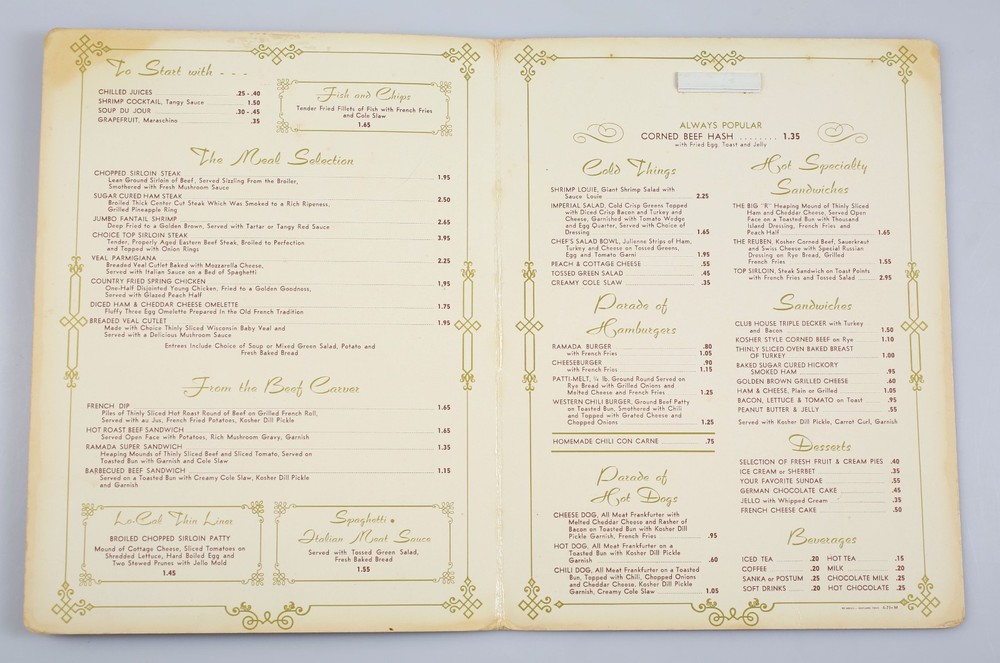 To Start with - - -
CHILLED JUICES .25-.40
SHRIMP COCKTAIL, Tangy Sauce 1.50
SOUP DU JOUR .30-.45
GRAPEFRUIT, Maraschino .35
Fish and Chips
Tender Fried Fillets of Fish with French Fries
and Cole Slaw
1.65
The Meal Selection
CHOPPED SIRLOIN STEAK 1.95
Lean Ground Sirloin of Beef, Served Sizzling From the Broiler,
Smothered with Fresh Mushroom Sauce
SUGAR CURED HAM STEAK 2.50
Broiled Thick Center Cut Steak Which Was Smoked to a Rich Ripeness,
Grilled Pineapple Ring
JUMBO FANTAIL SHRIMP 2.65
Deep Fried to a Golden Brown, Served with Tartar or Tangy Red Sauce
CHOICE TOP SIRLOIN STEAK 3.95
Tender, Properly Aged Eastern Beef Steak, Broiled to Perfection
and Topped with Onion Rings
VEAL PARMIGIANA 2.25
Breaded Veal Cutlet Baked with Mozzarella Cheese,
Served with Italian Sauce on a Bed of Spaghetti
COUNTRY FRIED SPRING CHICKEN 1.95
One-Half Disjointed Young Chicken, Fried to a Golden Goodness,
Served with Glazed Peach Half
DICED HAM & CHEDDAR CHEESE OMELETTE 1.75
Fluffy Three Egg Omelette Prepared In the Old French Tradition
BREADED VEAL CUTLET 1.95
Made with Choice Thinly Sliced Wisconsin Baby Veal and
Served with a Delicious Mushroom Sauce
Entrees Include Choice of Soup or Mixed Green Salad, Potato and
Fresh Baked Bread
From the Beef Carver
FRENCH DIP 1.65
Piles of Thinly Sliced Hot Roast Round of Beef on Grilled French Roll,
Served with au Jus, French Fried Potatoes, Kosher Dill Pickle
HOT ROAST BEEF SANDWICH 1.65
Served Open Face with Potatoes, Rich Mushroom Gravy, Garnish
RAMADA SUPER SANDWICH 1.35
Heaping Mounds of Thinly Sliced Beef and Sliced Tomato, Served on
Toasted Bun with Garnish and Cole Slaw
BARBECUED BEEF SANDWICH 1.15
Served on a Toasted Bun with Creamy Cole Slaw, Kosher Dill Pickle
and Garnish
Lo-Cal Thin Liner
BROILED CHOPPED SIRLOIN PATTY
Mound of Cottage Cheese, Sliced Tomatoes on
Shredded Lettuce, Hard Boiled Egg and
Two Stewed Prunes with Jello Mold
1.45
Spaghetti •
Italian Meat Sauce
Served with Tossed Green Salad,
Fresh Baked Bread
1.55
ALWAYS POPULAR
CORNED BEEF HASH ........ 1.35
with Fried Egg, Toast and Jelly
Cold Things
SHRIMP LOUIE, Giant Shrimp Salad with
Sauce Louie 2.25
IMPERIAL SALAD, Cold Crisp Greens Topped
with Diced Crisp Bacon and Turkey and
Cheese, Garnished with Tomato Wedge
and Egg Quarter, Served with Choice of
Dressing 1.65
CHEF'S SALAD BOWL, Julienne Strips of Ham,
Turkey and Cheese on Tossed Greens,
Egg and Tomato Garni 1.95
PEACH & COTTAGE CHEESE .55
TOSSED GREEN SALAD .45
CREAMY COLE SLAW .35
Parade of
Hamburgers
RAMADA BURGER .80
with French Fries 1.05
CHEESEBURGER .90
with French Fries 1.15
PATTI-MELT, ¼ lb. Ground Round Served on
Rye Bread with Grilled Onions and
Melted Cheese and French Fries 1.25
WESTERN CHILI BURGER, Ground Beef Patty
on Toasted Bun, Smothered with Chili
and Topped with Grated Cheese and
Chopped Onions 1.25
HOMEMADE CHILI CON CARNE .75
Parade of
Hot Dogs
CHEESE DOG, All Meat Frankfurter with
Melted Cheddar Cheese and Rasher of
Bacon on Toasted Bun with Kosher Dill
Pickle Garnish, French Fries .95
HOT DOG, All Meat Frankfurter on a
Toasted Bun with Kosher Dill Pickle
Garnish .60
CHILI DOG, All Meat Frankfurter on a Toasted
Bun, Topped with Chili, Chopped Onions
and Cheddar Cheese, Kosher Dill Pickle
Garnish, Creamy Cole Slaw 1.05
Hot Speciality
Sandwiches
THE BIG "R" Heaping Mound of Thinly Sliced
Ham and Cheddar Cheese, Served Open
Face on a Toasted Bun with Thousand
Island Dressing, French Fries and
Peach Half 1.65
THE REUBEN, Kosher Corned Beef, Sauerkraut
and Swiss Cheese with Special Russian
Dressing on Rye Bread, Grilled
French Fries 1.55
TOP SIRLOIN, Steak Sandwich on Toast Points
with French Fries and Tossed Salad 2.95
Sandwiches
CLUB HOUSE TRIPLE DECKER with Turkey
and Bacon 1.50
KOSHER STYLE CORNED BEEF on Rye 1.10
THINLY SLICED OVEN BAKED BREAST
OF TURKEY 1.00
BAKED SUGAR CURED HICKORY
SMOKED HAM .95
GOLDEN BROWN GRILLED CHEESE .60
HAM & CHEESE, Plain or Grilled 1.05
BACON, LETTUCE & TOMATO on Toast .95
PEANUT BUTTER & JELLY .55
Served with Kosher Dill Pickle, Carrot Curl, Garnish
Desserts
SELECTION OF FRESH FRUIT & CREAM PIES .40
ICE CREAM or SHERBET .35
YOUR FAVORITE SUNDAE .55
GERMAN CHOCOLATE CAKE .45
JELLO with Whipped Cream .35
FRENCH CHEESE CAKE .50
Beverages
ICED TEA .20 HOT TEA .15
COFFEE .20 MILK .20
SANKA or POSTUM .25 CHOCOLATE MILK .25
SOFT DRINKS .20 HOT CHOCOLATE .25